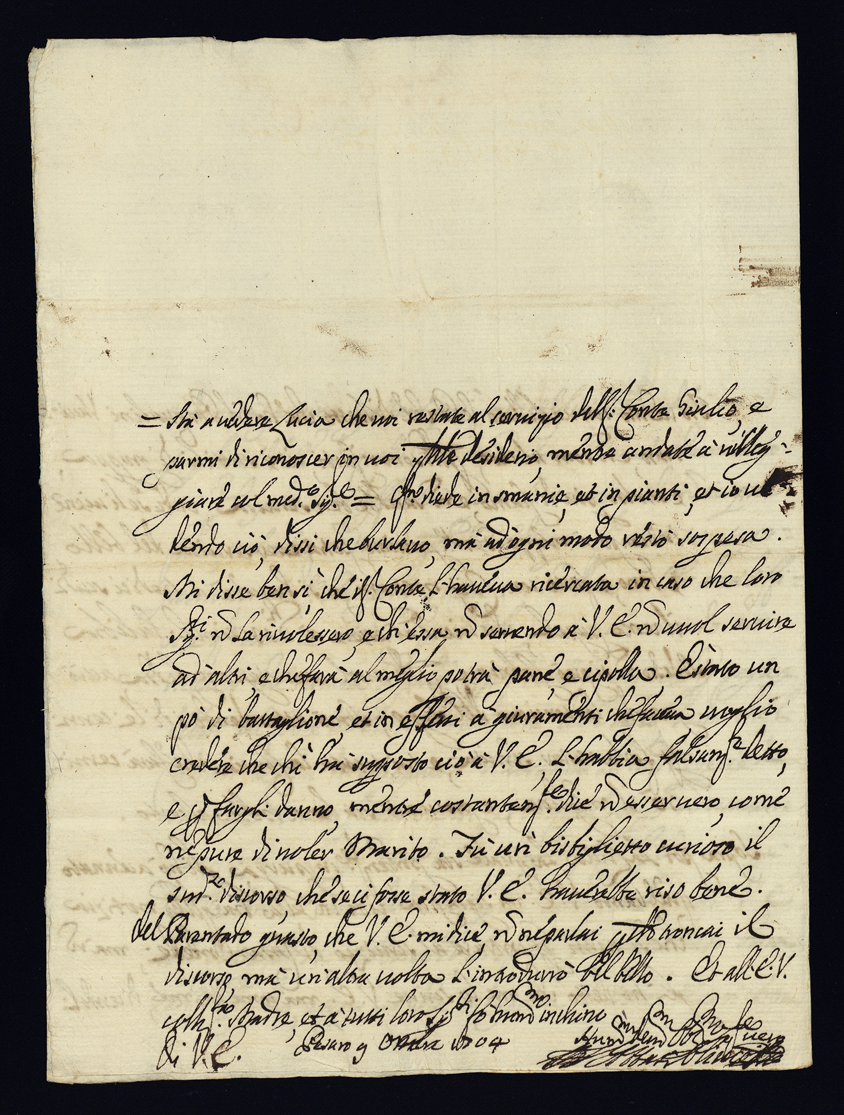 = Stà a vedere Lucia che voi restate al servizio dell Sr. Conte Giulio, e
parmi di riconoscer in voi desiderio, mentre andate à villeg=
giare col med.o Sig.re = diede in smanie, et in pianti, et io ve
dendo ciò, dissi che burlavo, mà ad ogni modo restò sospesa.
Mi disse ben sì che il Sr. Conte l'haveva ricercata in caso che loro
Sig.ri nō la rivolessero, e ch'essa nō servendo à V. E. nō vuol servire
ad altri e che farà al meglio potrà pane e cipolla. È stato un
pò di battaglione, et in effetti a giuramenti che faceva voglio
credere che chi hà supposto ciò à V. E. l'habbia falsam.te detto,
e p fargli danno, mentre costantem.te dice nō esser vero, come
nè pure di voler Marito. Fù un bisbiglietto curioso il
sud.o discorso che se ci fosse stato V. E. haverebbe riso bene.
Del Parentado guasto che V. E. mi dice nō ne parlai troncai il
discorso, mà un'altra volta l'introdurrò bel bello. Et all'E. V.
Madre, et à tutti loro Sig.ri inchino
di V. E. Pesaro 9 Ottbre 1704